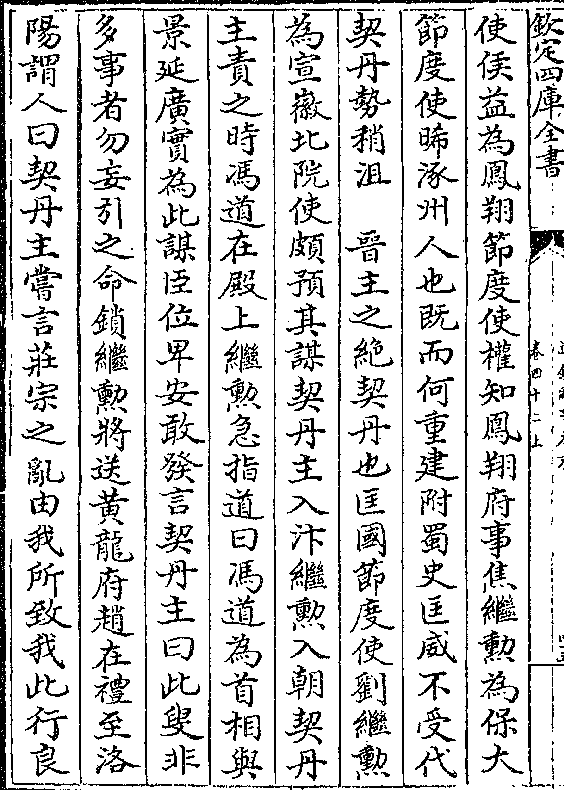 欽定四庫全書
卷四十二上
使侯益為鳳翔節度使權知鳳翔府事焦繼勲為保大
節度使晞涿州人也既而何重建附蜀史匡威不受代
契丹勢稍沮　晉主之絶契丹也匡國節度使劉繼勲
為宣徽北院使頗預其謀契丹主入汴繼勲入朝契丹
主責之時馮道在殿上繼勲急指道曰馮道為首相與
景延廣實為此謀臣位卑安敢發言契丹主曰此叟非
多事者勿妄引之命鎖繼勲將送黄龍府趙在禮至洛
陽謂人曰契丹主嘗言莊宗之亂由我所致我此行良